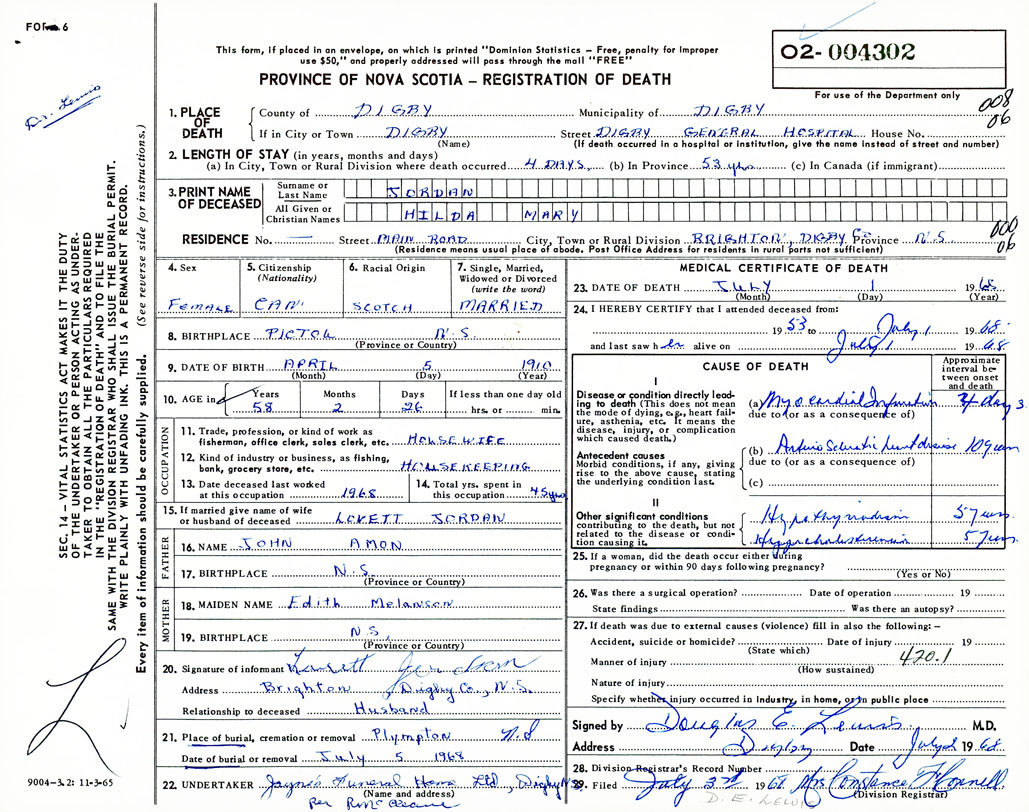 FORM 6
This form, if placed in an envelope, on which is printed "Dominion Statistics – Free, penalty for improper
use $50," and properly addressed will pass through the mail "FREE"
PROVINCE OF NOVA SCOTIA – REGISTRATION OF DEATH
02-004302
For use of the Department only
008
06
Dr. Lewis
1. PLACE OF DEATH
County of DIGBY Municipality of DIGBY
If in City or Town DIGBY Street DIGBY GENERAL HOSPITAL House No.
(Name) (If death occurred in a hospital or institution, give the name instead of street and number)
2. LENGTH OF STAY (in years, months and days)
(a) In City, Town or Rural Division where death occurred 4 DAYS (b) In Province 53 yrs (c) In Canada (if immigrant)
3. PRINT NAME OF DECEASED
Surname or Last Name JORDAN
All Given or Christian Names HILDA MARY
RESIDENCE No. — Street MAIN ROAD City, Town or Rural Division BRIGHTON, DIGBY Co Province N.S
(Residence means usual place of abode. Post Office Address for residents in rural parts not sufficient)
000
06
4. Sex FEMALE
5. Citizenship (Nationality) CAN
6. Racial Origin SCOTCH
7. Single, Married, Widowed or Divorced (write the word) MARRIED
8. BIRTHPLACE PICTOU N.S.
(Province or Country)
9. DATE OF BIRTH APRIL 5 1910
(Month) (Day) (Year)
10. AGE in Years 58 Months 2 Days 26 If less than one day old hrs. or min.
OCCUPATION
11. Trade, profession, or kind of work as
fisherman, office clerk, sales clerk, etc. HOUSEWIFE
12. Kind of industry or business, as fishing,
bank, grocery store, etc. HOUSEKEEPING
13. Date deceased last worked
at this occupation 1968
14. Total yrs. spent in
this occupation 45 yrs
15. If married give name of wife
or husband of deceased LOVETT JORDAN
FATHER
16. NAME JOHN AMON
17. BIRTHPLACE N.S
(Province or Country)
MOTHER
18. MAIDEN NAME Edith Melanson
19. BIRTHPLACE N.S,
(Province or Country)
20. Signature of informant Lovett Jordan
Address Brighton Digby Co., N.S.
Relationship to deceased Husband
21. Place of burial, cremation or removal Plympton N.S
Date of burial or removal July 5 1968
22. UNDERTAKER Jayne's Funeral Home Ltd, Digby N.S
(Name and address)
per
MEDICAL CERTIFICATE OF DEATH
23. DATE OF DEATH JULY 1 1968
(Month) (Day) (Year)
24. I HEREBY CERTIFY that I attended deceased from:
1953 to July 1 1968
and last saw her alive on July 1 1968
CAUSE OF DEATH
Approximate interval between onset and death
I
Disease or condition directly lead-
ing to death (This does not mean
the mode of dying, e.g., heart fail-
ure, asthenia, etc. It means the
disease, injury, or complication
which caused death.)
(a) Myocardial Infarction 4 days
due to (or as a consequence of)
Antecedent causes
Morbid conditions, if any, giving
rise to the above cause, stating
the underlying condition last.
(b) Arteriosclerotic heart disease 10 years
due to (or as a consequence of)
(c)
II
Other significant conditions
contributing to the death, but not
related to the disease or condi-
tion causing it.
Hypothyroidism 5 years
Hypercholesteremia 5 years
25. If a woman, did the death occur either during
pregnancy or within 90 days following pregnancy?
(Yes or No)
26. Was there a surgical operation? Date of operation 19
State findings Was there an autopsy?
27. If death was due to external causes (violence) fill in also the following: –
Accident, suicide or homicide? Date of injury 19
(State which)
420.1
Manner of injury
(How sustained)
Nature of injury
Specify whether injury occurred in Industry, in home, or in public place
Signed by Douglas E. Lewis M.D.
Address Digby Date July 2 1968
28. Division Registrar's Record Number
29. Filed July 3rd 1968 Mrs Constance
(Division Registrar)
D. E. LEWIS
SEC. 14 – VITAL STATISTICS ACT MAKES IT THE DUTY
OF THE UNDERTAKER OR PERSON ACTING AS UNDER-
TAKER TO OBTAIN ALL THE PARTICULARS REQUIRED
IN THE "REGISTRATION OF DEATH" AND TO FILE THE
SAME WITH THE DIVISION REGISTRAR WHO SHALL ISSUE THE BURIAL PERMIT.
WRITE PLAINLY WITH UNFADING INK. THIS IS A PERMANENT RECORD.
Every item of information should be carefully supplied. (See reverse side for instructions.)
9004-3.2: 11-3-65